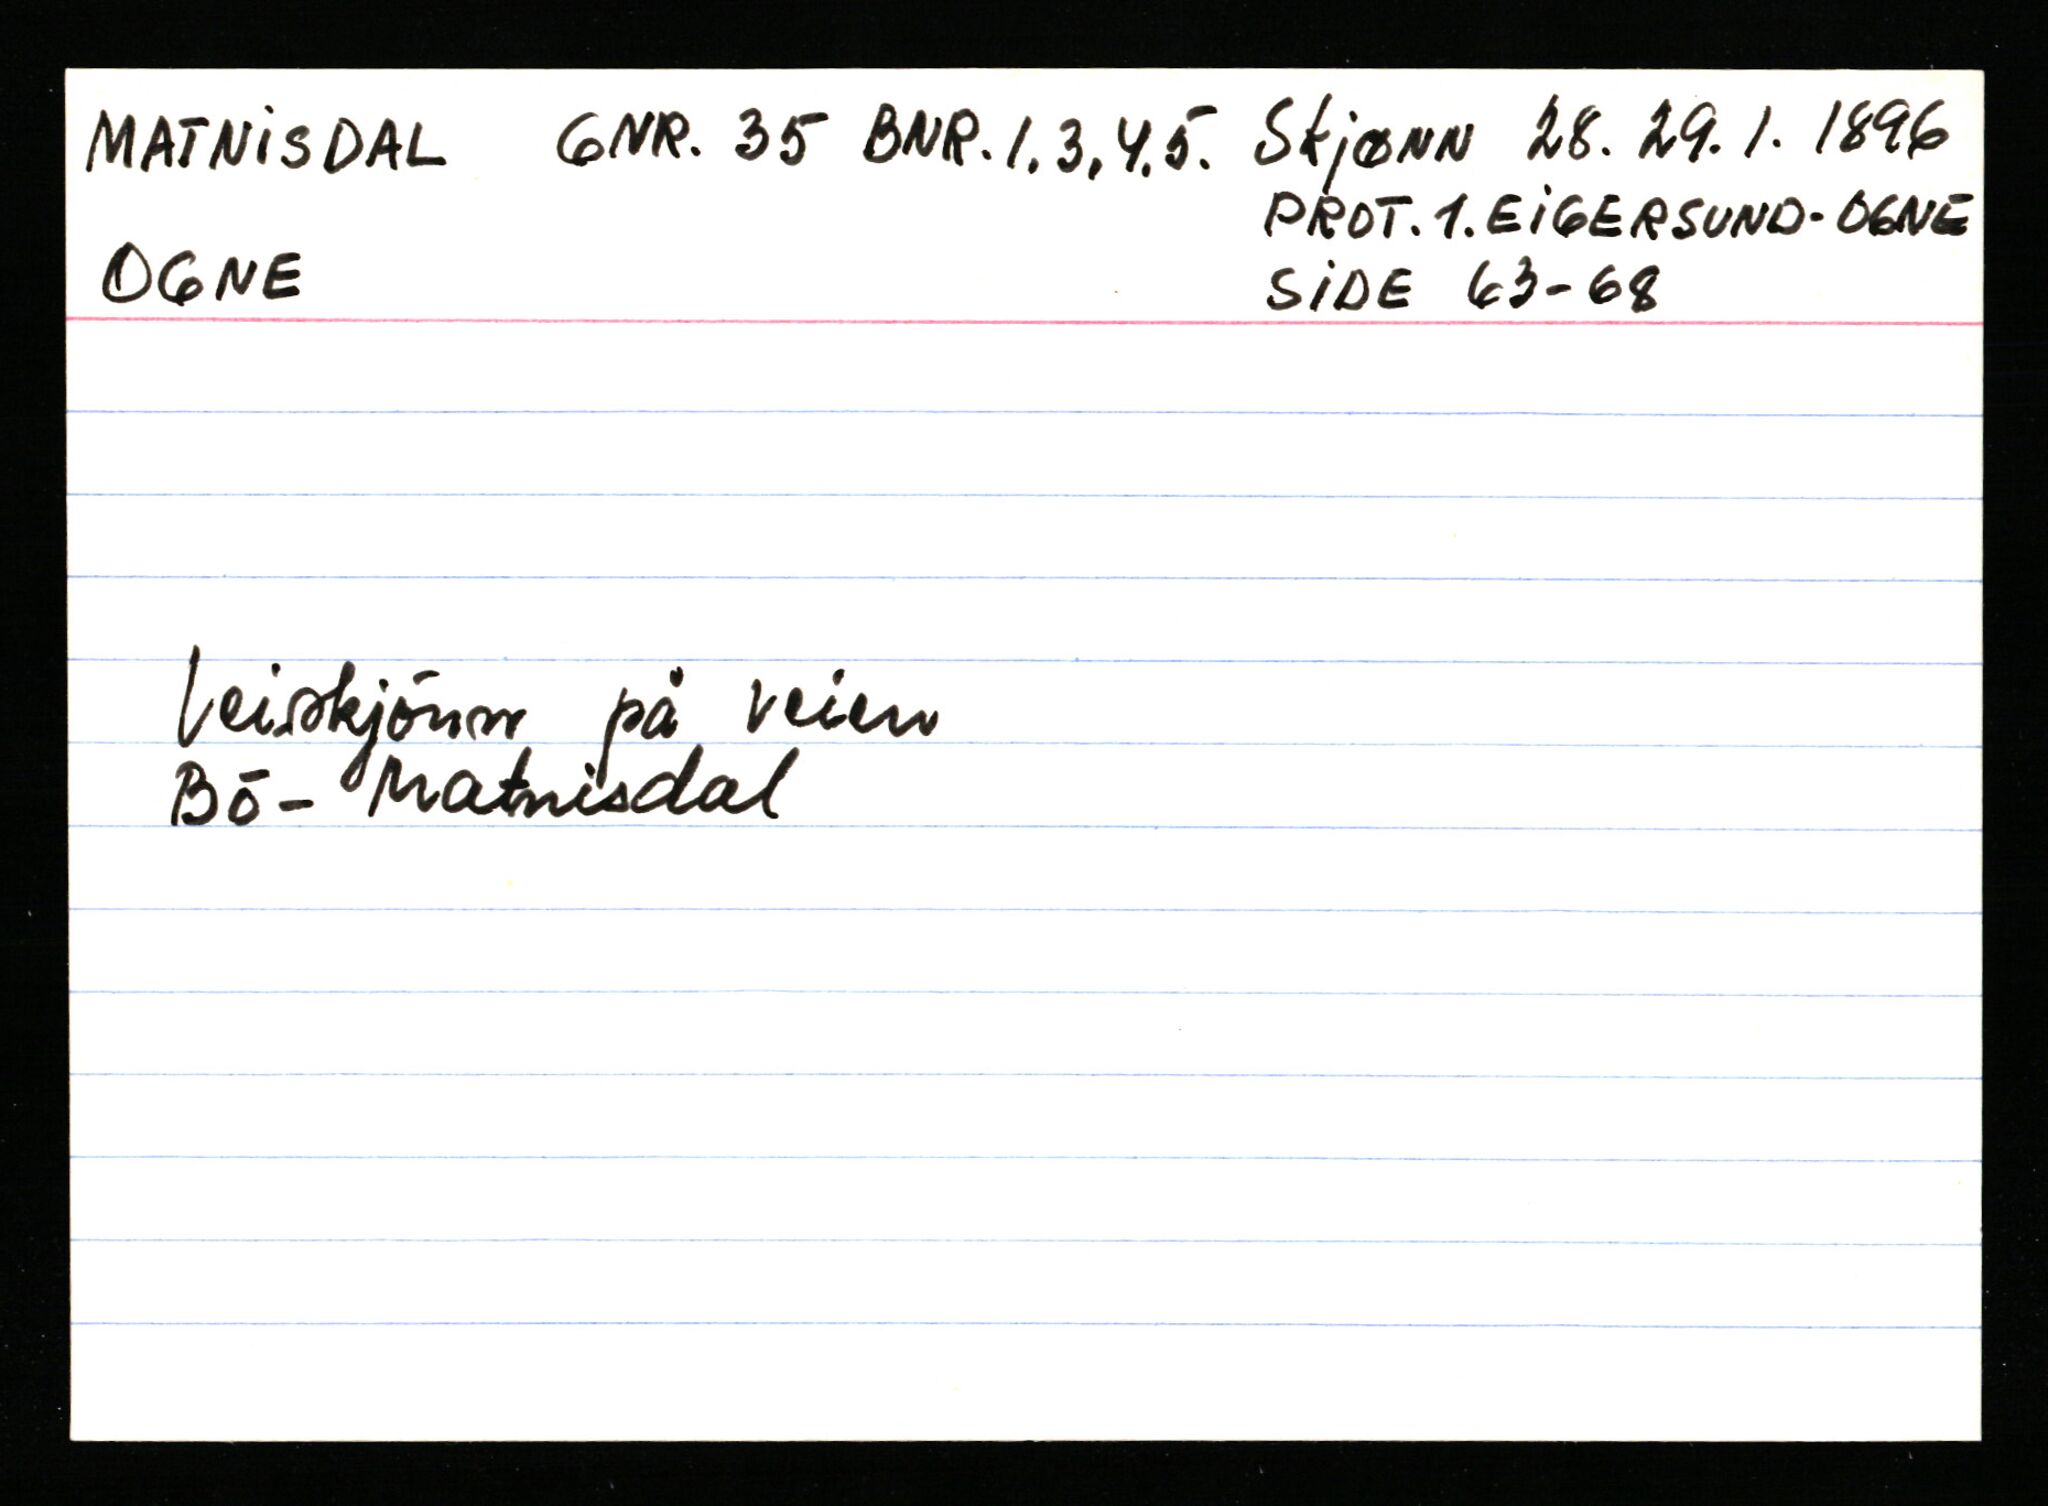 MATNiSDAL GNR. 35 BNR. 1. 3, 4. 5. Skjønn 28. 29. 1. 1896
PROT. 1. EiGERSUND-OGNE
OGNE
SiDE 63-68
Veiskjōnn på veien
Bō- Matnisdal